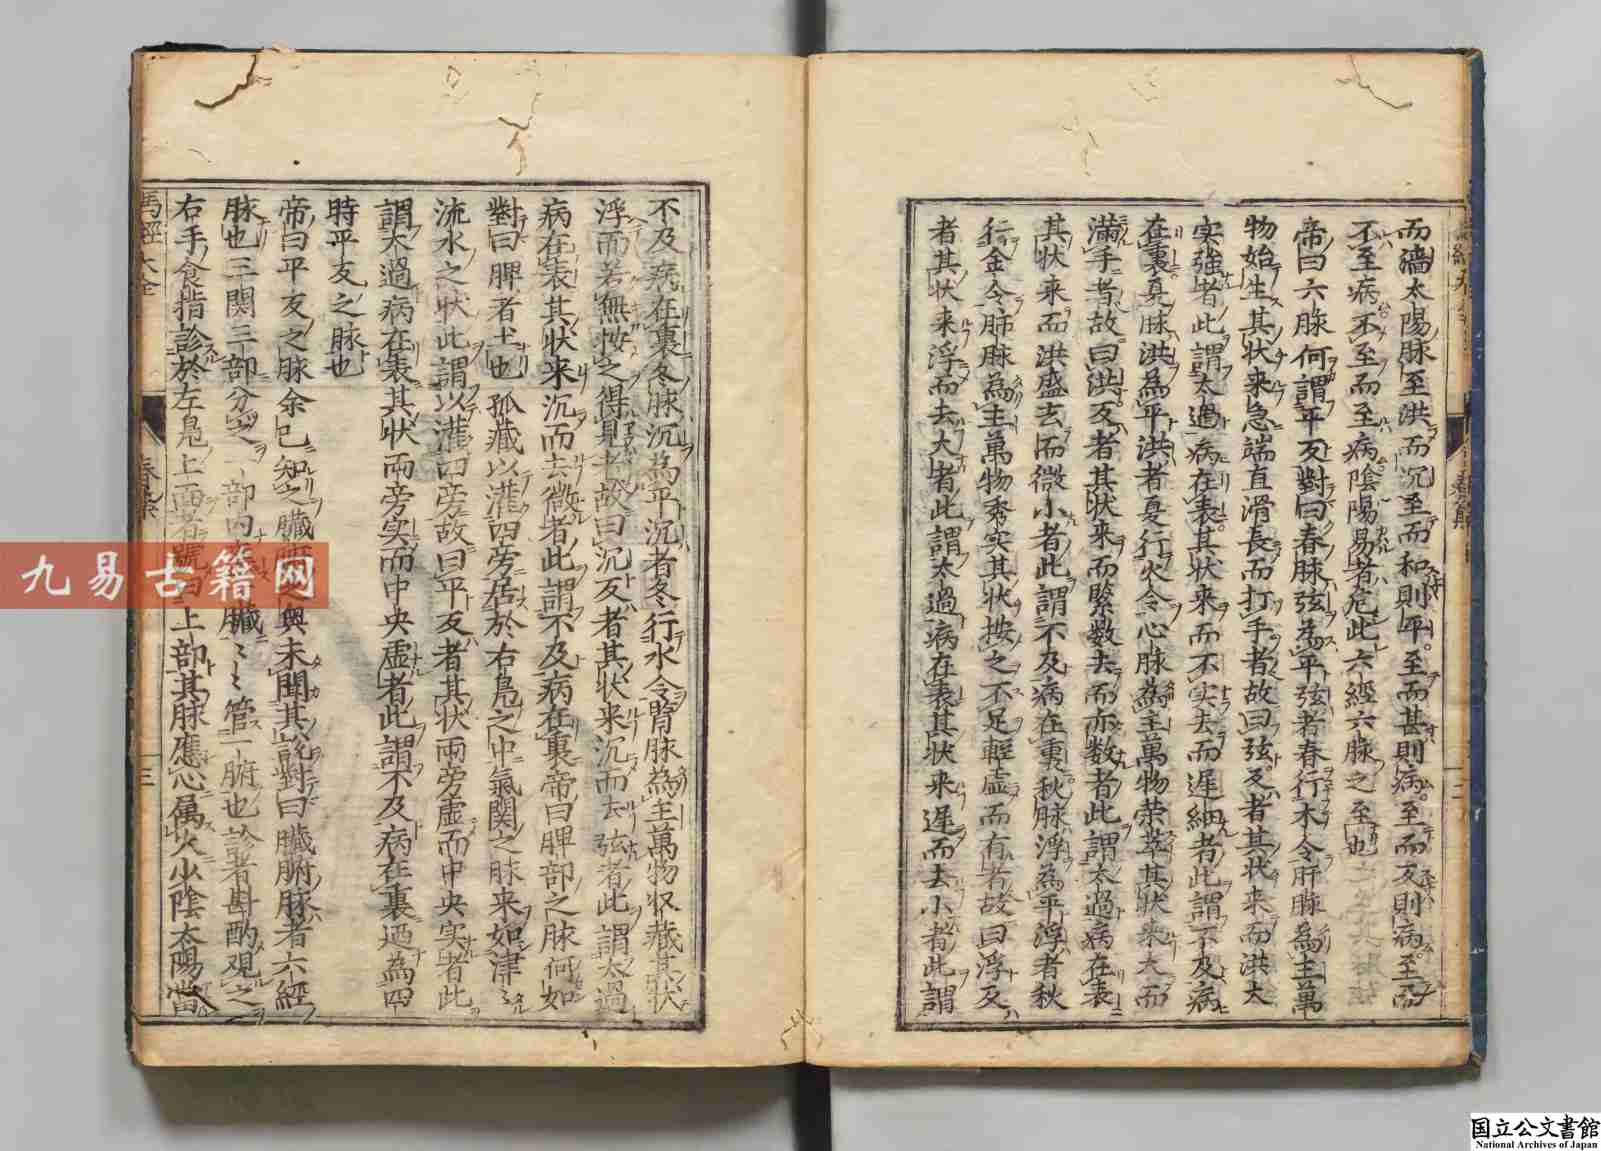 而濇太陽脉至洪而沉至而和則平。至而甚則病。至而反則病。至而
不至病不至而至病陰陽易者危此六經六脉之至也
帝曰六脉何謂平反對曰春脉弦為平弦者春行木令肝脉為主萬
物始生其状来急端直滑長而打手者故曰弦反者其状来而洪大
实強者此謂太過病在表。其状来而不实去而遲細者此謂不及病
在裏夏脉洪為平洪者夏行火令心脉為主萬物荣萃其状来大而
滿手者故曰洪反者其状来而緊数去而亦数者此謂太過病在表
其状来而洪盛去而微小者此謂不及病在裏秋脉浮為平浮者秋
行金令肺脉為主萬物秀实其状按之不足輕虚而有者故曰浮反
者其状来浮而去大者此謂太過病在表其状来遲而去小者此謂
不及病在裏冬脉沉為平沉者冬行水令腎脉為主萬物収藏其状
浮而若無按之得見者故曰沉反者其状来沉而去弦者此謂太過
病在表其状来沉而去微者此謂不及病在裏帝曰脾部之脉何如
對曰脾者土也孤藏以灌四旁居於右凫之中氣関之脉来如津〻
流水之状此謂以灌四旁故曰平反者其状兩旁虚而中央实者此
謂太過病在表其状兩旁实而中央虚者此謂不及病在裏廼為四
時平反之脉也
帝曰平反之脉余已知之臟之輿未聞其說對曰臟腑脉者六經
脉也三関三部分之一部内臟〻管一腑也診者斟酌观之
右手食指診於左凫上面者號曰上部其脉應心属火少陰太陽當
馬經大全
春集
三
九易古籍网
国立公文書館
National Archives of Japan